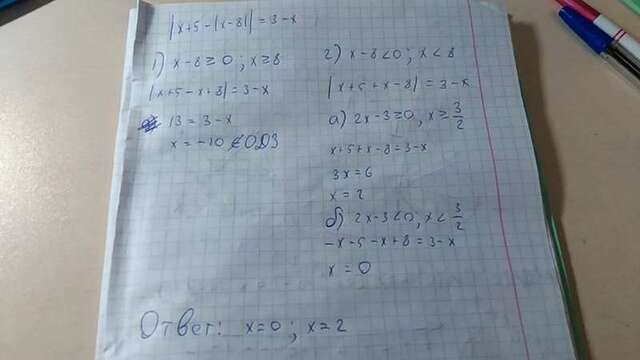 |x+5-|x-8|| = 3-x
1) x-8≥0; x≥8
|x+5-x+8| = 3-x
13 = 3-x
x = -10 ∉ ОДЗ
2) x-8<0; x<8
|x+5+x-8| = 3-x
а) 2x-3≥0, x≥3/2
x+5+x-8=3-x
3x=6
x=2
б) 2x-3<0, x<3/2
-x-5-x+8=3-x
x=0
Ответ: x=0; x=2